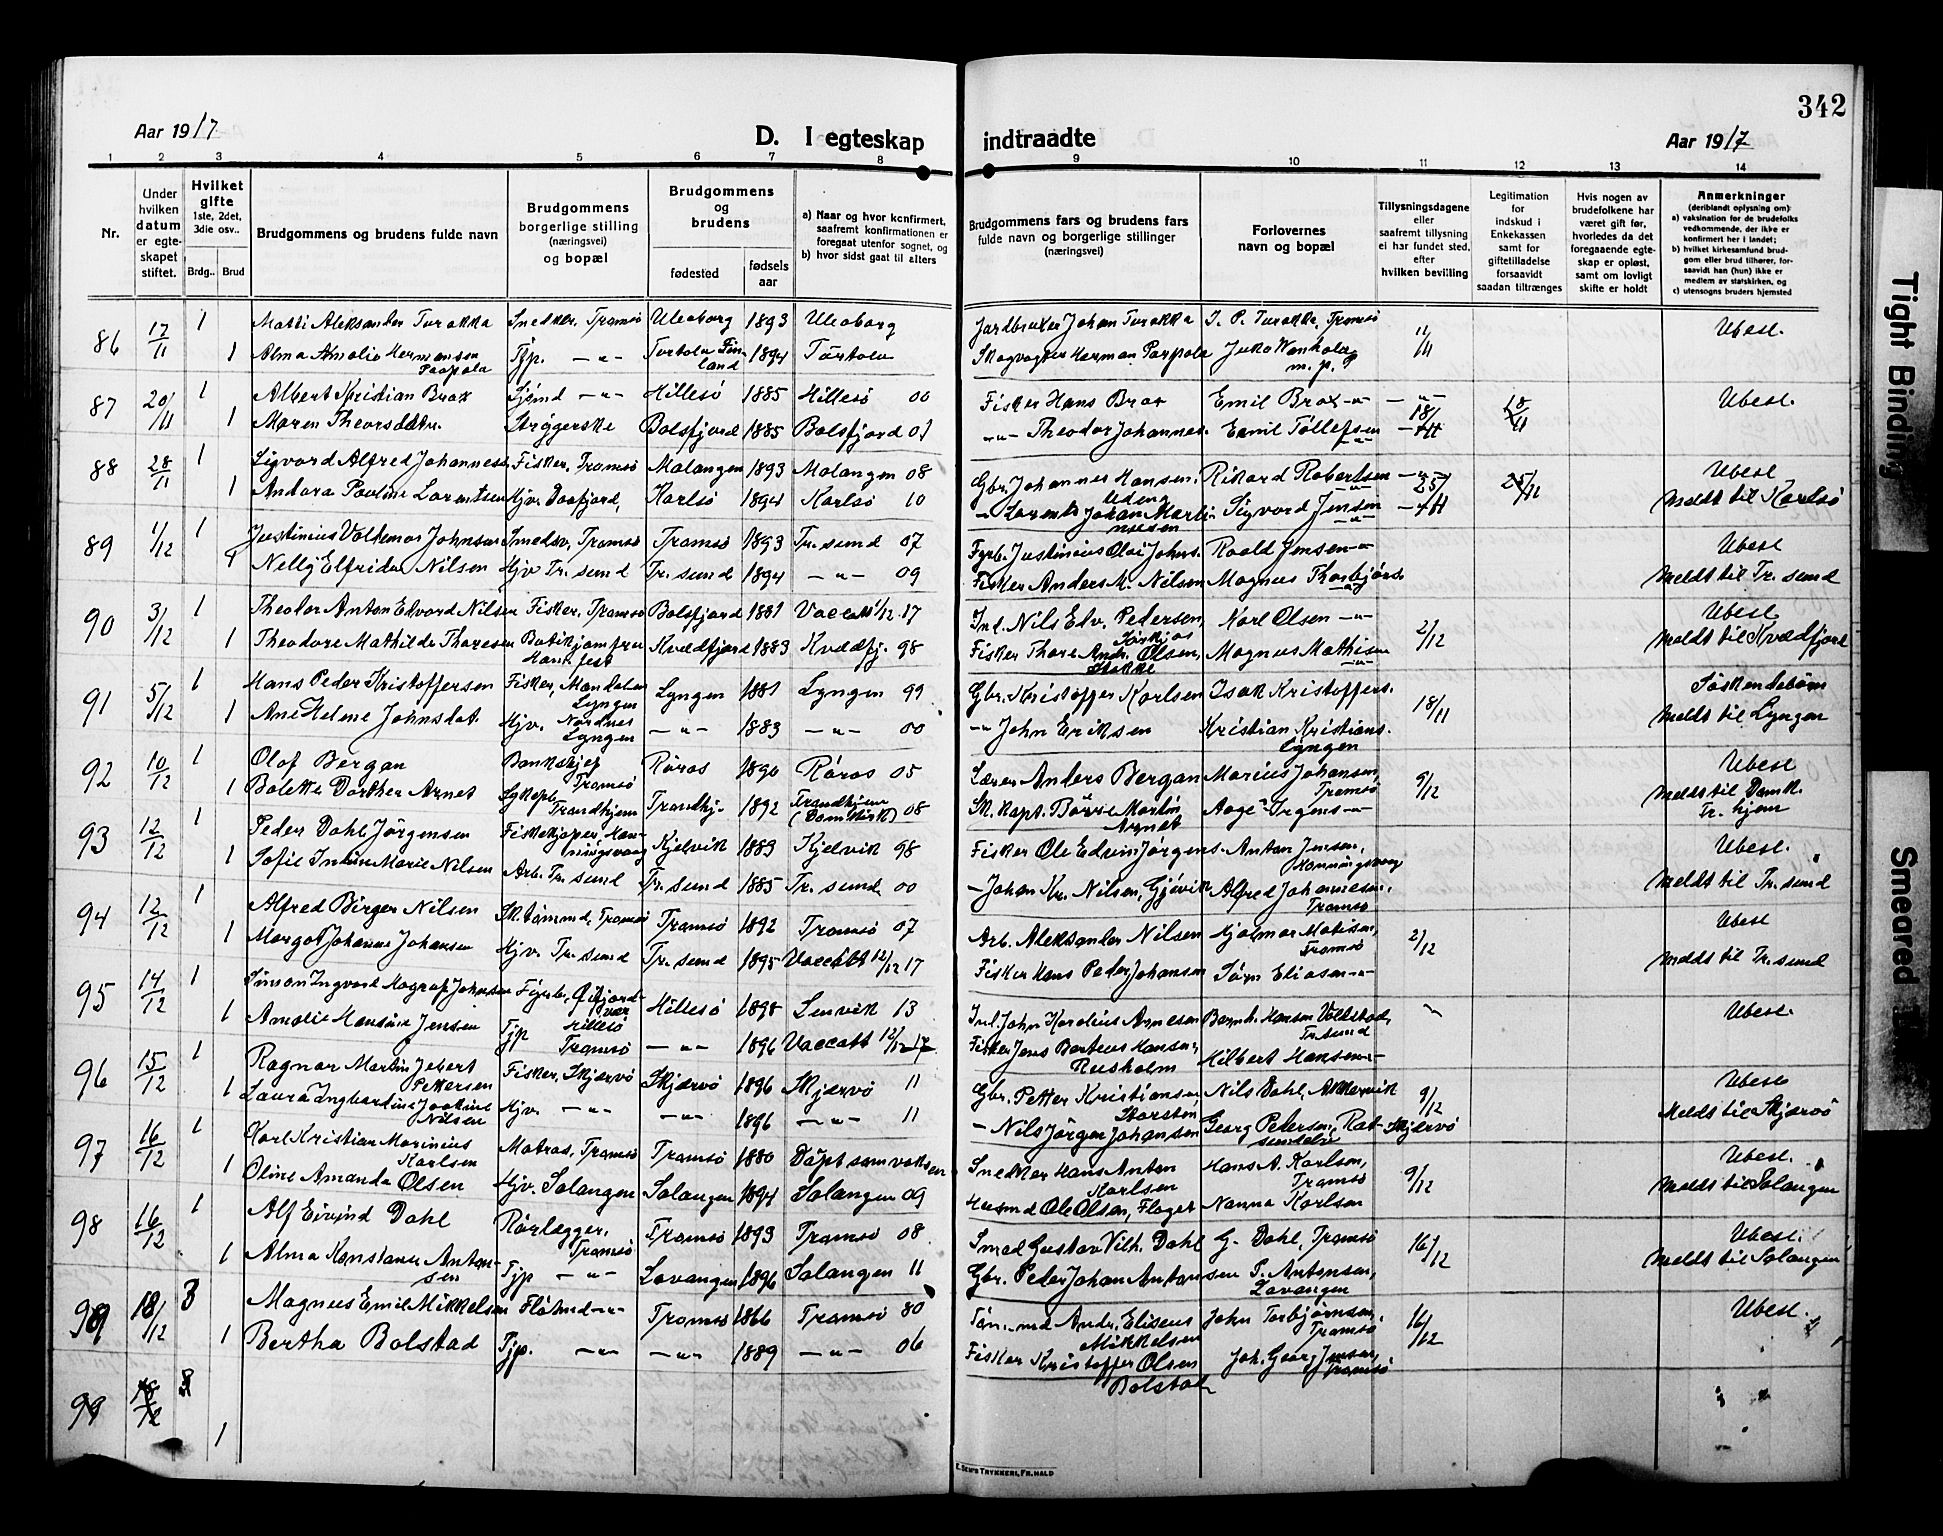 342
Aar 1917 D. I egteskap indtraadte Aar 1917
1 2 3 4 5 6 7 8 9 10 11 12 13 14
Nr.
Under hvilken datum er egteskapet stiftet.
Hvilket gifte 1ste, 2det, 3die osv..
Brdg.. Brud
Brudgommens og brudens fulde navn
Brudgommens borgerlige stilling (næringsvei) og bopæl
Brudgommens og brudens
fødested
fødsels aar
a) Naar og hvor konfirmert, saafremt konfirmationen er foregaat utenfor sognet, og
b) hvor sidst gaat til alters
Brudgommens fars og brudens fars fulde navn og borgerlige stillinger (næringsvei)
Forlovernes navn og bopæl
Tillysningsdagene eller saafremt tillysning ei har fundet sted, efter hvilken bevilling
Legitimation for indskud i Enkekassen samt for giftetilladelse forsaavidt saadan tiltrænges
Hvis nogen av brudefolkene har været gift før, hvorledes da det foregaaende egteskap er opløst, samt om lovligt skifte er holdt
Anmerkninger (deriblandt oplysning om):
a) vaksination for de brudefolks vedkommende, der ikke er konfirmert her i landet;
b) hvilket kirkesamfund brudgom eller brud tilhører, forsaavidt han (hun) ikke er medlem av statskirken, og
c) utensogns bruders hjemsted
86 17/11 1 Matti Aleksander Turakka Snedker, Tromsø Uleaborg 1893 Uleaborg Jordbruker Johan Turakka J. P. Turakka, Tromsø 11/11 Ubesl.
1 Alma Amalie Hermansen Paapola Tjp. -"- Turtola Finland 1894 Turtola Skogvogter Herman Papola
87 20/11 1 Albert Kristian Brox Sjømd -"- Hillesø 1885 Hillesø 00 Fisker Hans Brox Emil Brox -"- -"- 18/11 Ubesl.
1 Maren Theorsdatr. Strygerske Balsfjord 1885 Balsfjord 01 -"- Theodor Johannes. Emil Tollefsen 18/11
88 28/11 1 Sigvard Alfred Johannesen Fisker, Tromsø Malangen 1893 Malangen 08 Gbr. Johannes Hansen, Rikard Robertsen -"- 25/11 Ubesl
1 Andora Pauline Lorentsen Hjv. Karlsø 1894 Karlsø 10 Johan Martinussen Sigvard Jensen 25/11 Meldt til Karlsø
89 1/12 1 Justinius Valdemar Johnsen Smedsv. Tromsø Tromsø 1893 Tr. sund 07 Fyrb. Justinius Olai Johns. Roald Jensen -"- Ubesl
1 Nelly Elfrida Nilsen Hjv Tr. sund Tr. sund 1894 -"- 09 Fisker Anders M. Nilsen Magnus Thorbjørns. Meldt til Tr. sund
90 3/12 1 Theodor Anton Edvard Nilsen Fisker, Tromsø Balsfjord 1881 Vaccatt 1/12 17 Ind. Nils Edv. Pedersen, Karl Olsen -"- 2/12 Ubesl
1 Theodore Mathilde Thoresen Kvædfjord 1883 Kvædfj. 98 Fisker Thore Andr. Olsen, Magnus Mathisen Meldt til Kvædfjord
91 5/12 1 Hans Peder Kristoffersen Fisker, Mandalen Lyngen Lyngen 1881 Lyngen 99 Gbr. Kristoffer Karlsen Isak Kristoffers. 18/11 Søskendebørn
1 Ane Helene Johnsdat. Hjv. Nordnes Lyngen -"- 1883 -"- 00 -"- John Eriksen Kristian Kristians. Lyngen Meldt til Lyngen
92 10/12 1 Olaf Bergan Bankchef Tromsø Røros 1890 Røros 05 Lærer Anders Bergan Marius Johansen, Tromsø 9/12 Ubesl
1 Bolette Dorthea Arnet Sykepl. Trondhjem Trondhj. 1892 Trondhjem (Domkirk) 08 Sk. kapt. Børre Martin Arndt Aage Irgens -"- Meldt til Domk. Tr. hjem
93 12/12 1 Peder Dahl Jørgensen Fiskekjøper, Honningsvaag Kjelvik 1883 Kjelvik 98 Fisker Ole Edvin Jørgens. Anton Jensen, Honningsvaag Ubesl.
1 Sofie Indine Marie Nilsen Arb. Tr. sund Tr. sund 1885 Tr. sund 00 - Johan Kr. Nilsen, Gjøvik Alfred Johannesen, Tromsø Meldt til Tr. sund
94 12/12 1 Alfred Birger Nilsen Sk. tømmd, Tromsø Tromsø 1892 Tromsø 07 Arb. Aleksander Nilsen Hjalmar Matisen, Tromsø 2/12 Ubesl
1 Margot Johanne Johansen Hjv. Tr. sund Tr. sund 1895 Vaccatt 12/12 17 Fisker Hans Peder Johansen Søren Eliasen -"- Meldt til Tr. sund
95 14/12 1 Simon Ingvard Hagrup Johnsen Hillesø Hillesø 1898 Lenvik 13 Ind. John Kordius Arnesen Bernh. Hansen Valkstad, Tr. sund Ubesl.
1 Amalie Hansine Jensen Tjp Tromsø -"- 1896 Vaccatt 12/12 17 Fisker Jens Berteus Hansen, Rusholm Hilbert Hansen -"-
96 15/12 1 Ragnar Martin Jebert Pettersen Fisker, Skjærvø Skjærvø 1896 Skjærvø 11 Gbr. Petter Kristiansen, Storstén Nils Dahl, Akkarvik 9/12 Ubesl
1 Laura Ingbardine Joakine Nilsen Hjv. -"- -"- 1896 -"- 11 - Nils Jørgen Johansen Georg Petersen, Rotsundelv Skjærvø Meldt til Skjærvø
97 16/12 1 Karl Kristian Marinius Karlsen Matros, Tromsø Tromsø 1880 Døpt som voksen Snedker Hans Anton Karlsen Hans A. Karlsen, Tromsø 9/12 Ubesl.
1 Oline Amanda Olsen Hjv. Salangen Salangen 1894 Salangen 09 Husmd Ole Olsen, Floget Nanna Karlsen Meldt til Salangen
98 16/12 1 Alf Eivind Dahl Rørlægger, Tromsø Tromsø 1893 Tromsø 08 Smed Gustav Vilh. Dahl G. Dahl, Tromsø 16/12 Ubesl.
1 Alma Konstanse Antonsen Tjp -"- Lavangen 1896 Salangen 11 Gbr. Peder Johan Antonsen P. Antonsen, Lavangen Meldt til Salangen
99 18/12 3 Magnus Emil Mikkelsen Tromsø 1866 Tromsø 80 Andr. Eliseus Mikkelsen John Torbjørnsen, Tromsø 16/12 Ubesl.
1 Bertha Bolstad Tjp. -"- -"- 1889 -"- 06 Fisker Kristoffer Olsen Bolstad Joh. Georg Jensen, Tromsø
99 18/12 3
1
E. SEM'S TRYKKERI, FR. HALD
Tight Binding
Smeared Ink